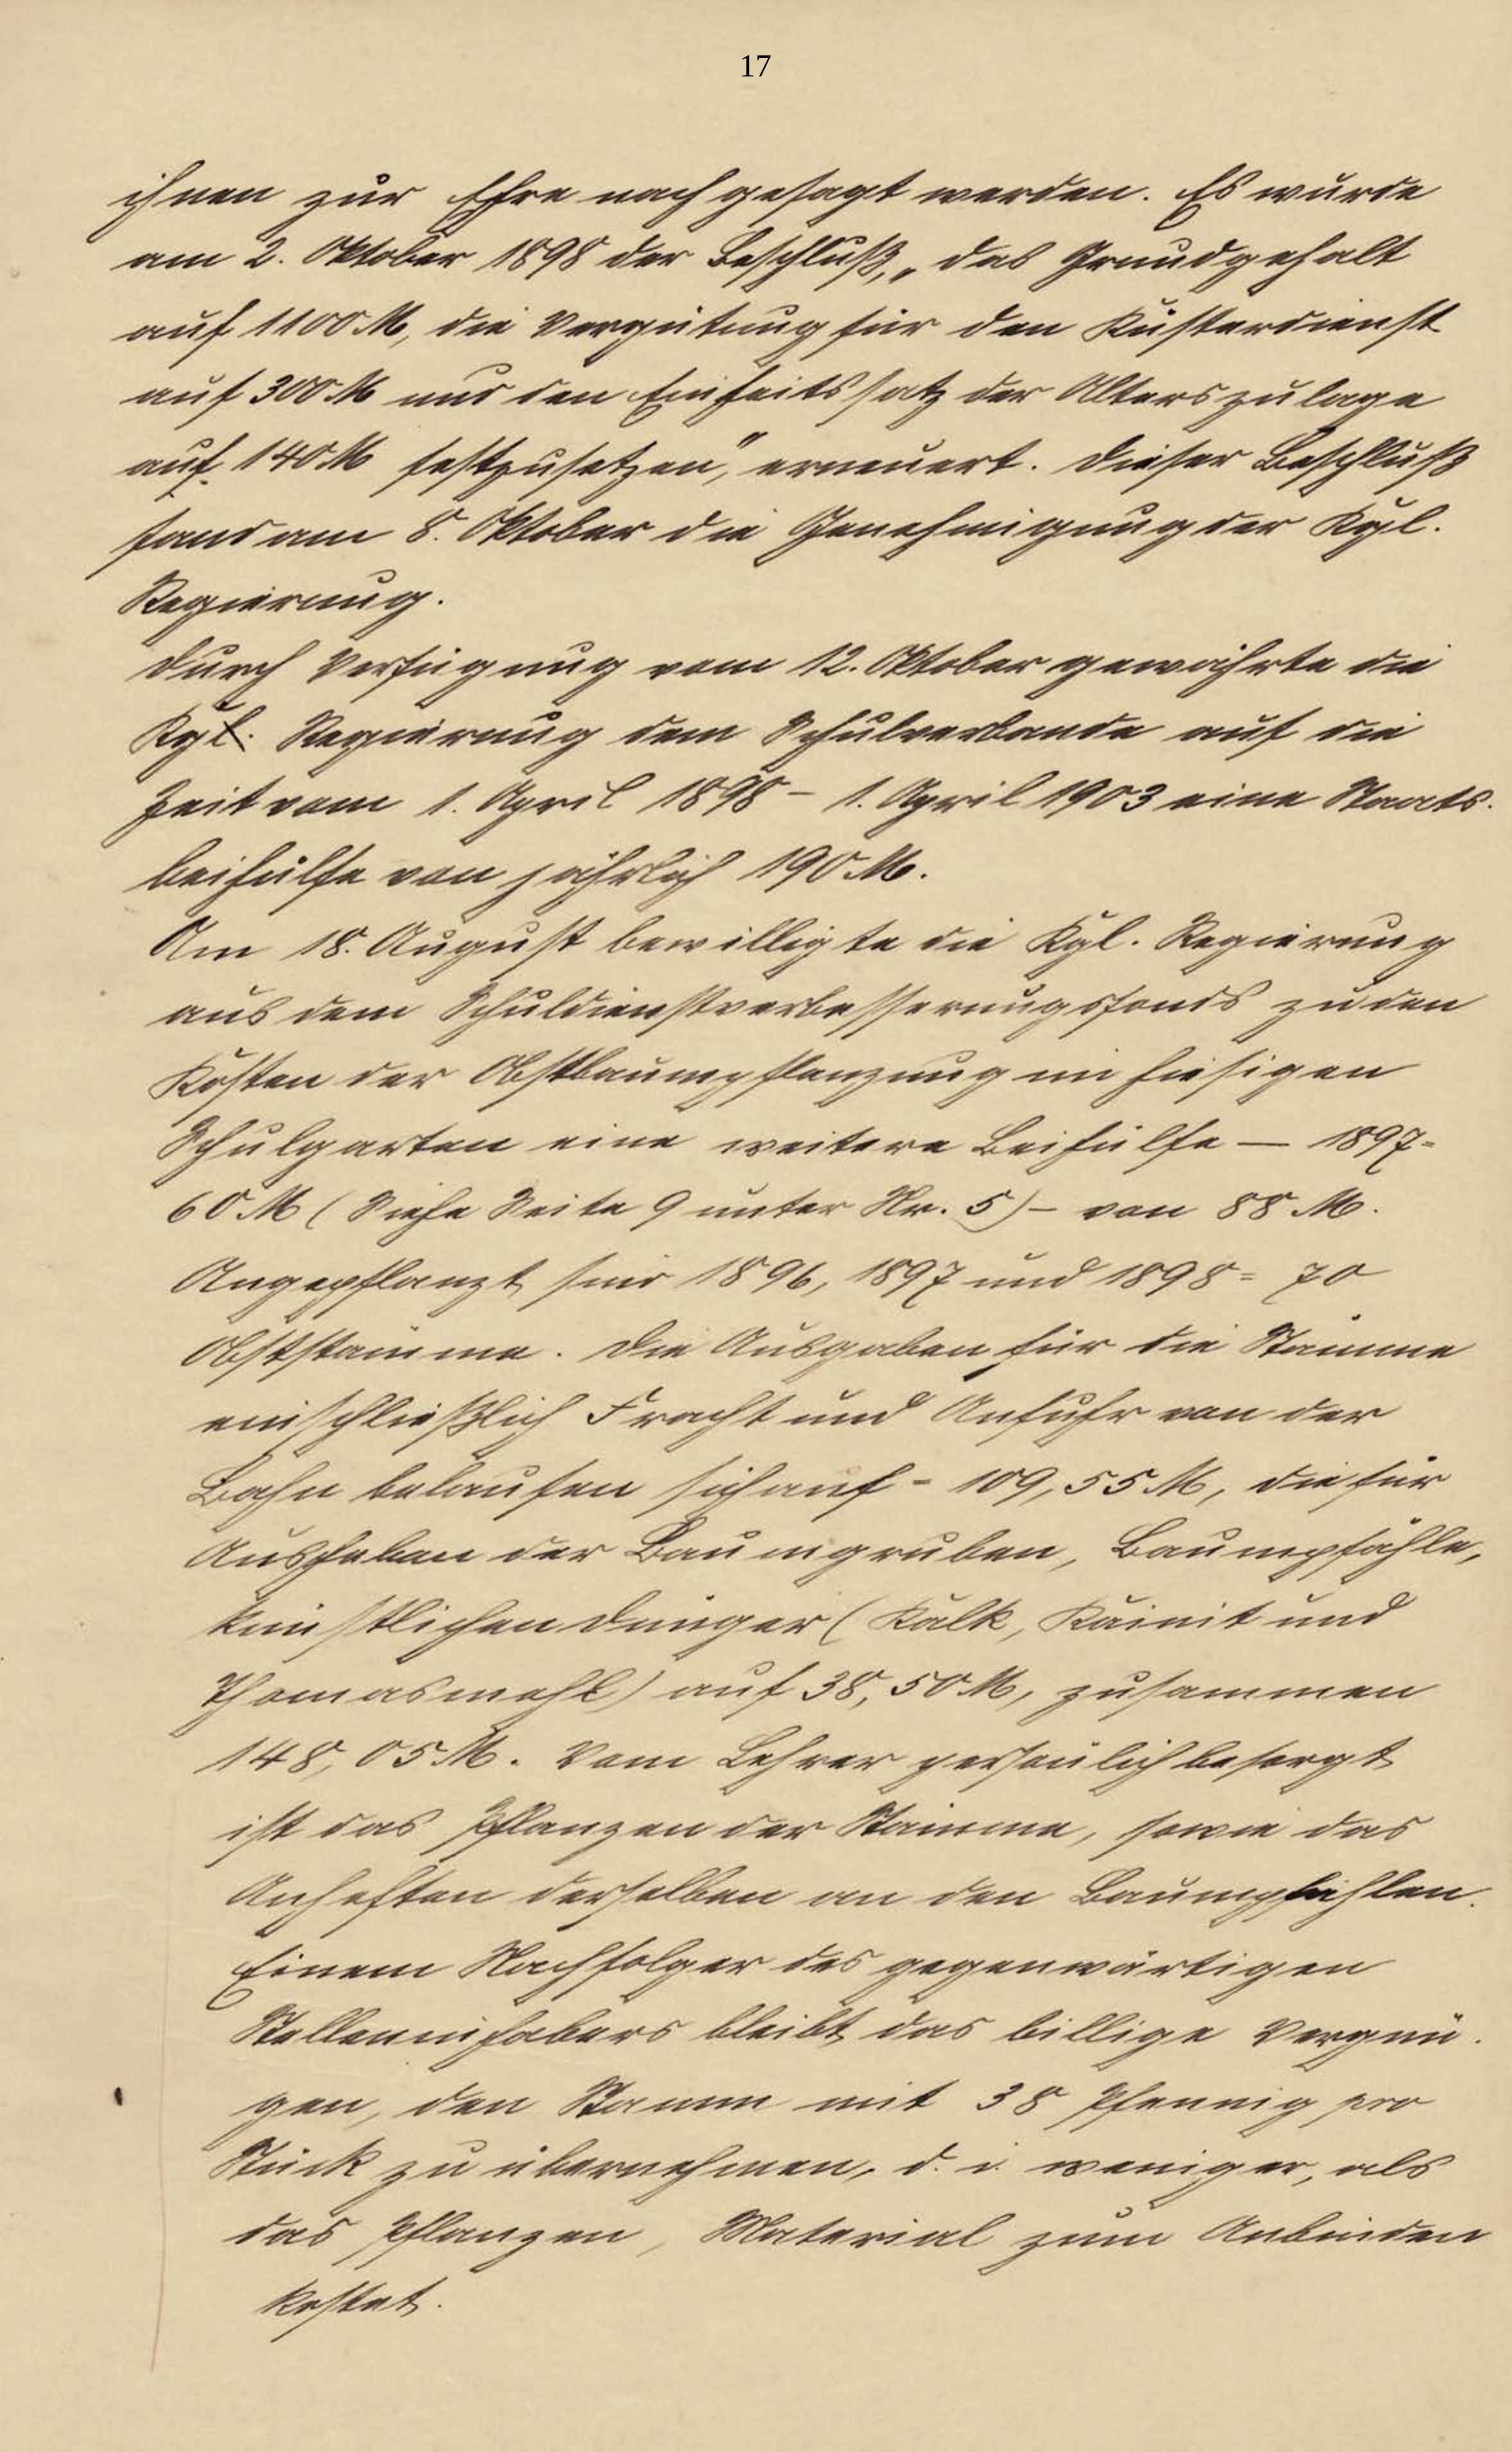 17
ihnen zur Ehre nachgesagt werden. Es wurde
am 2. Oktober 1898 der Beschluß, „das Grundgehalt
auf 1100 M, die Vergütung für den Küsterdienst
auf 300 M und den Einheitssatz der Alterszulage
auf 140 M festzusetzen", erneuert. Dieser Beschluß
fand am 8. Oktober die Genehmigung der Kgl.
Regierung.
Durch Verfügung vom 12. Oktober gewährte die
Kgl. Regierung dem Schulverbande auf die
Zeit vom 1. April 1898 – 1. April 1903 eine Staats-
beihülfe von jährlich 190 M.
Am 18. August bewilligte die Kgl. Regierung
aus dem Schuldienstverbesserungsfonds zu den
Kosten der Obstbaumpflanzung im hiesigen
Schulgarten eine weitere Beihülfe — 1897 =
60 M (Siehe Seite 9 unter Nr. 5) – von 88 M.
Angepflanzt sind 1896, 1897 und 1898 = 70
Obststämme. Die Ausgaben für die Stämme
einschließlich Fracht und Anfuhr von der
Bahn belaufen sich auf = 109,55 M, die für
Ausheben der Baumgruben, Baumpfähle,
künstlichen Dünger (Kalk, Kainit und
Thomasmehl) auf 38,50 M, zusammen
148,05 M. Vom Lehrer persönlich besorgt
ist das Pflanzen der Stämme, sowie das
Anheften derselben an den Baumpfählen.
Einem Nachfolger des gegenwärtigen
Stelleninhabers bleibt das billige Vergnü-
gen, den Stamm mit 38 Pfennig pro
Stück zu übernehmen, d. i. weniger, als
das Pflanzen, Material zum Anbinden
kostet.